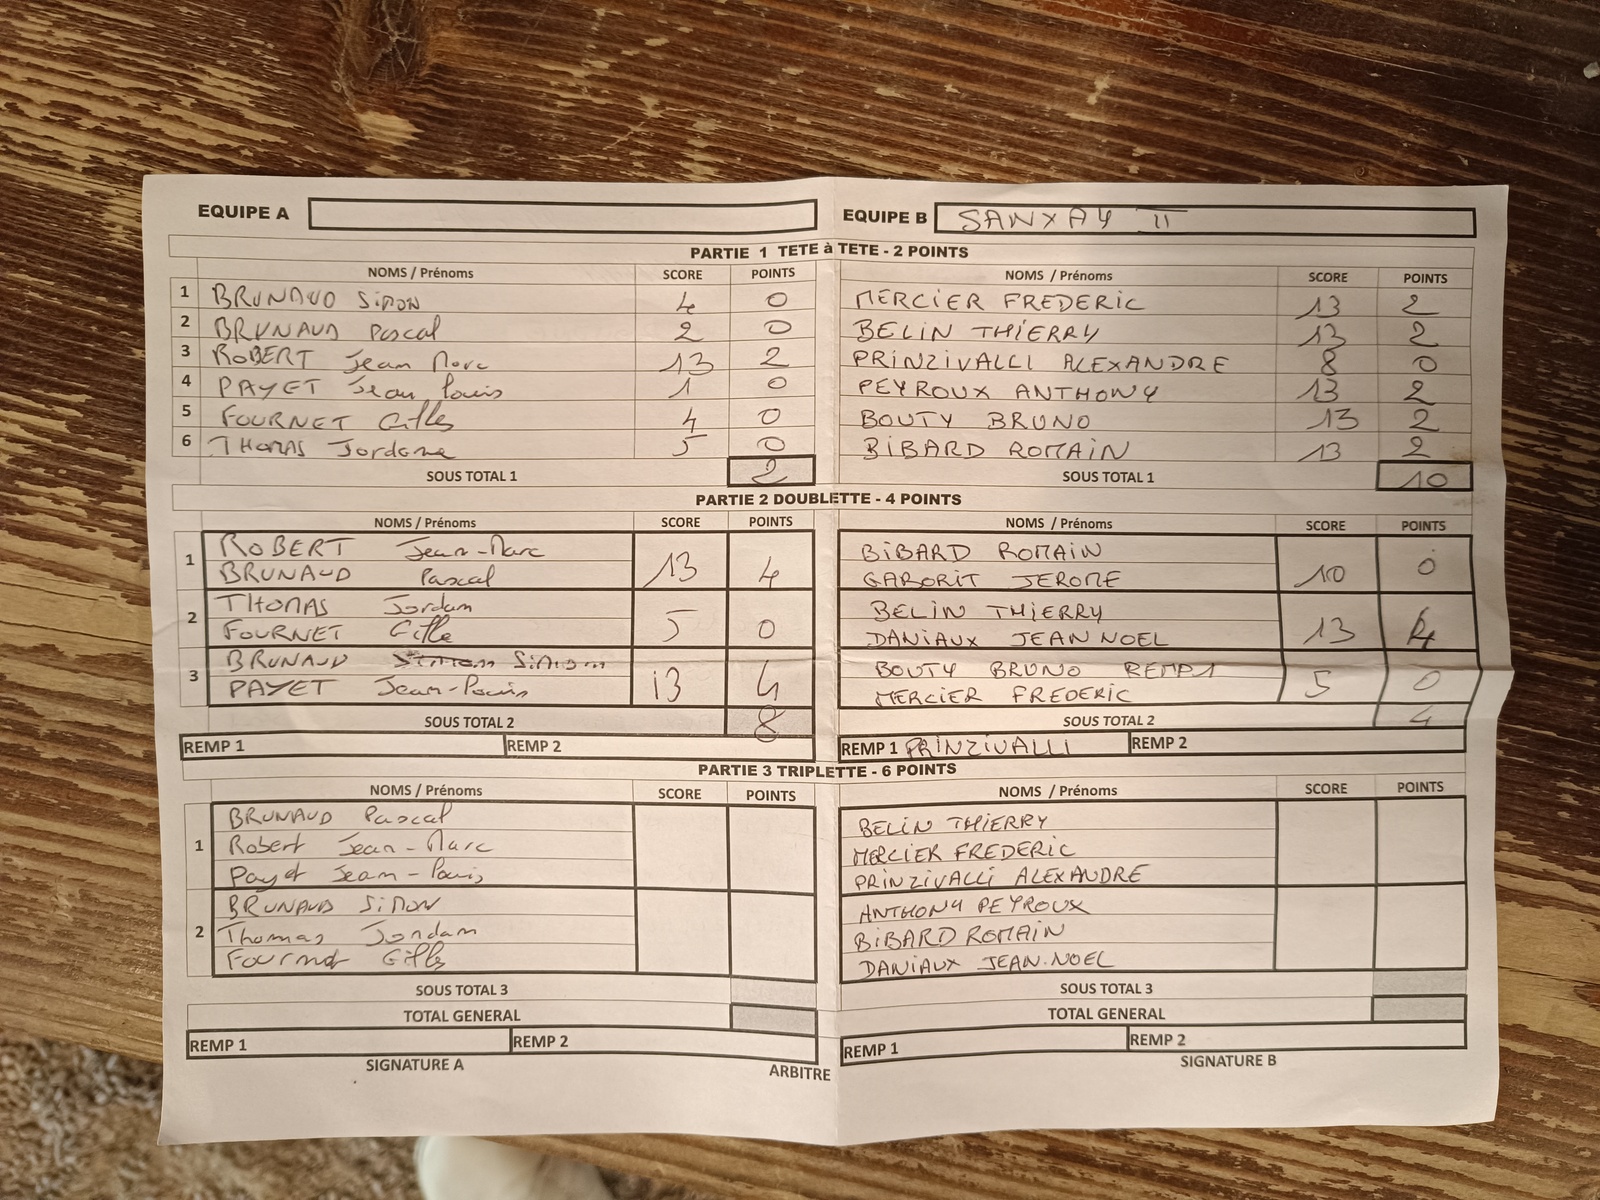 EQUIPE A EQUIPE B SANXAY II
PARTIE 1 TETE à TETE - 2 POINTS
NOMS / Prénoms SCORE POINTS NOMS / Prénoms SCORE POINTS
1 BRUNAUD Simon 4 0 MERCIER FREDERIC 13 2
2 BRUNAUD Pascal 2 0 BELIN THIERRY 13 2
3 ROBERT Jean Marc 13 2 PRINZIVALLI ALEXANDRE 8 0
4 PAYET Jean Louis 1 0 PEYROUX ANTHONY 13 2
5 FOURNET Gilles 4 0 BOUTY BRUNO 13 2
6 THOMAS Jordane 5 0 BIBARD ROMAIN 13 2
SOUS TOTAL 1 2 SOUS TOTAL 1 10
PARTIE 2 DOUBLETTE - 4 POINTS
NOMS / Prénoms SCORE POINTS NOMS / Prénoms SCORE POINTS
1 ROBERT Jean-Marc BIBARD ROMAIN
BRUNAUD Pascal 13 4 GABORIT JEROME 10 0
2 THOMAS Jordam BELIN THIERRY
FOURNET Gille 5 0 DANIAUX JEAN NOEL 13 4
3 BRUNAUD Simon BOUTY BRUNO REMP1
PAYET Jean-Louis 13 4 MERCIER FREDERIC 5 0
SOUS TOTAL 2 8 SOUS TOTAL 2 4
REMP 1 REMP 2 REMP 1 PRINZIVALLI REMP 2
PARTIE 3 TRIPLETTE - 6 POINTS
NOMS / Prénoms SCORE POINTS NOMS / Prénoms SCORE POINTS
BRUNAUD Pascal BELIN THIERRY
1 Robert Jean-Marc MERCIER FREDERIC
Payet Jean-Louis PRINZIVALLI ALEXANDRE
BRUNAUD Simon ANTHONY PEYROUX
2 Thomas Jordam BIBARD ROMAIN
Fournet Gilles DANIAUX JEAN-NOEL
SOUS TOTAL 3 SOUS TOTAL 3
TOTAL GENERAL TOTAL GENERAL
REMP 1 REMP 2 REMP 1 REMP 2
SIGNATURE A ARBITRE SIGNATURE B